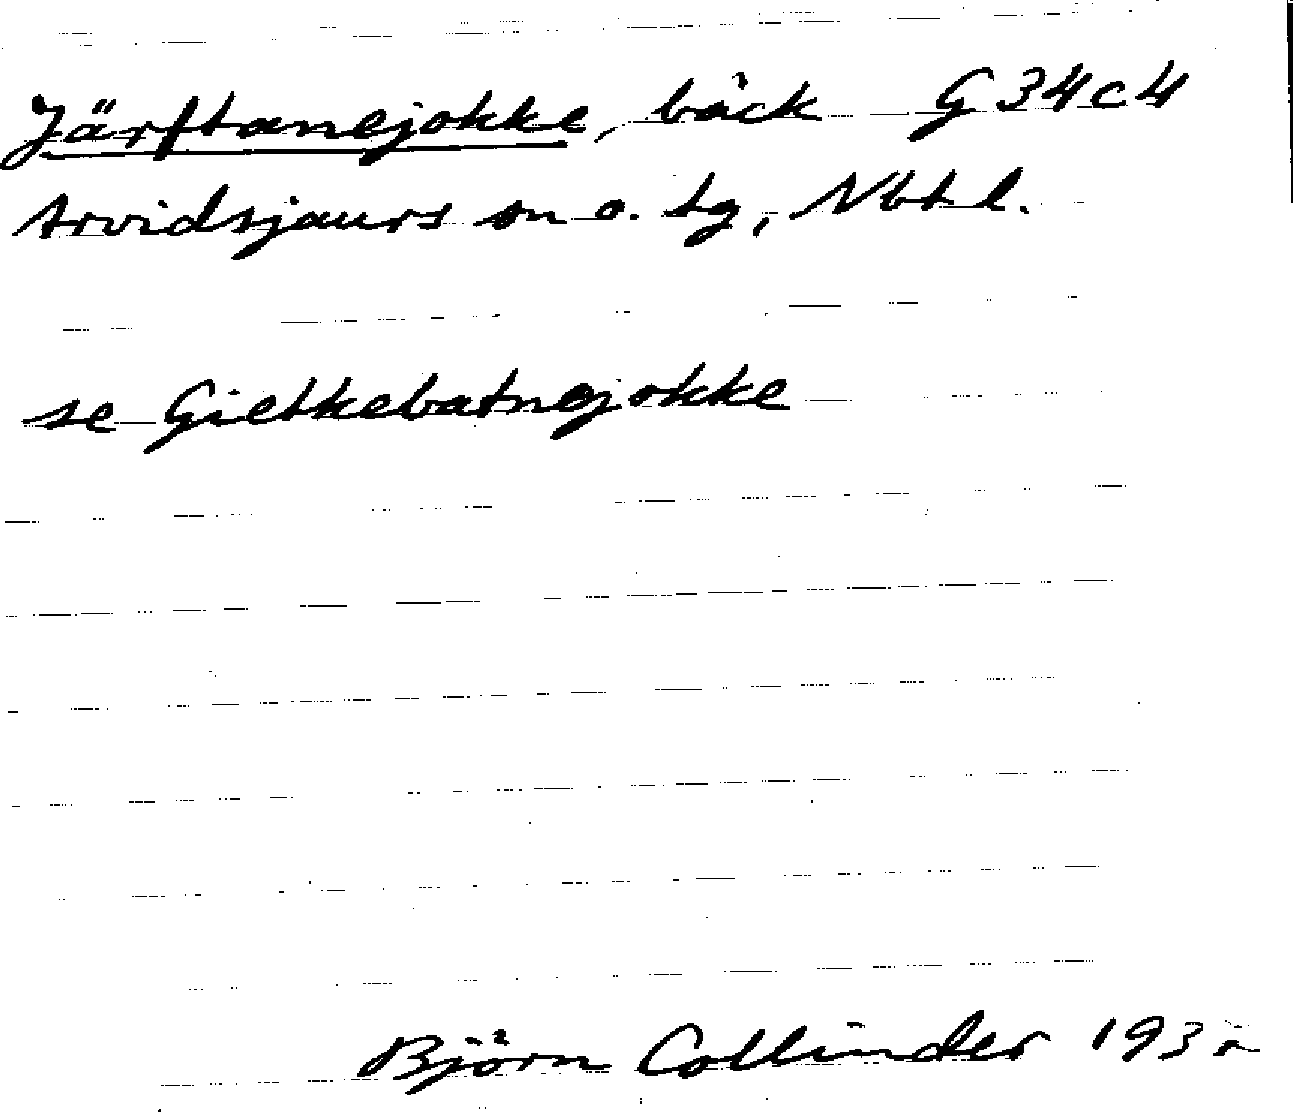 Järftanejokke, bäck G 34 c 4
Arvidsjaurs sn o. tg, Nbtl.
se Gietkebatnejokke
Björn Collinder